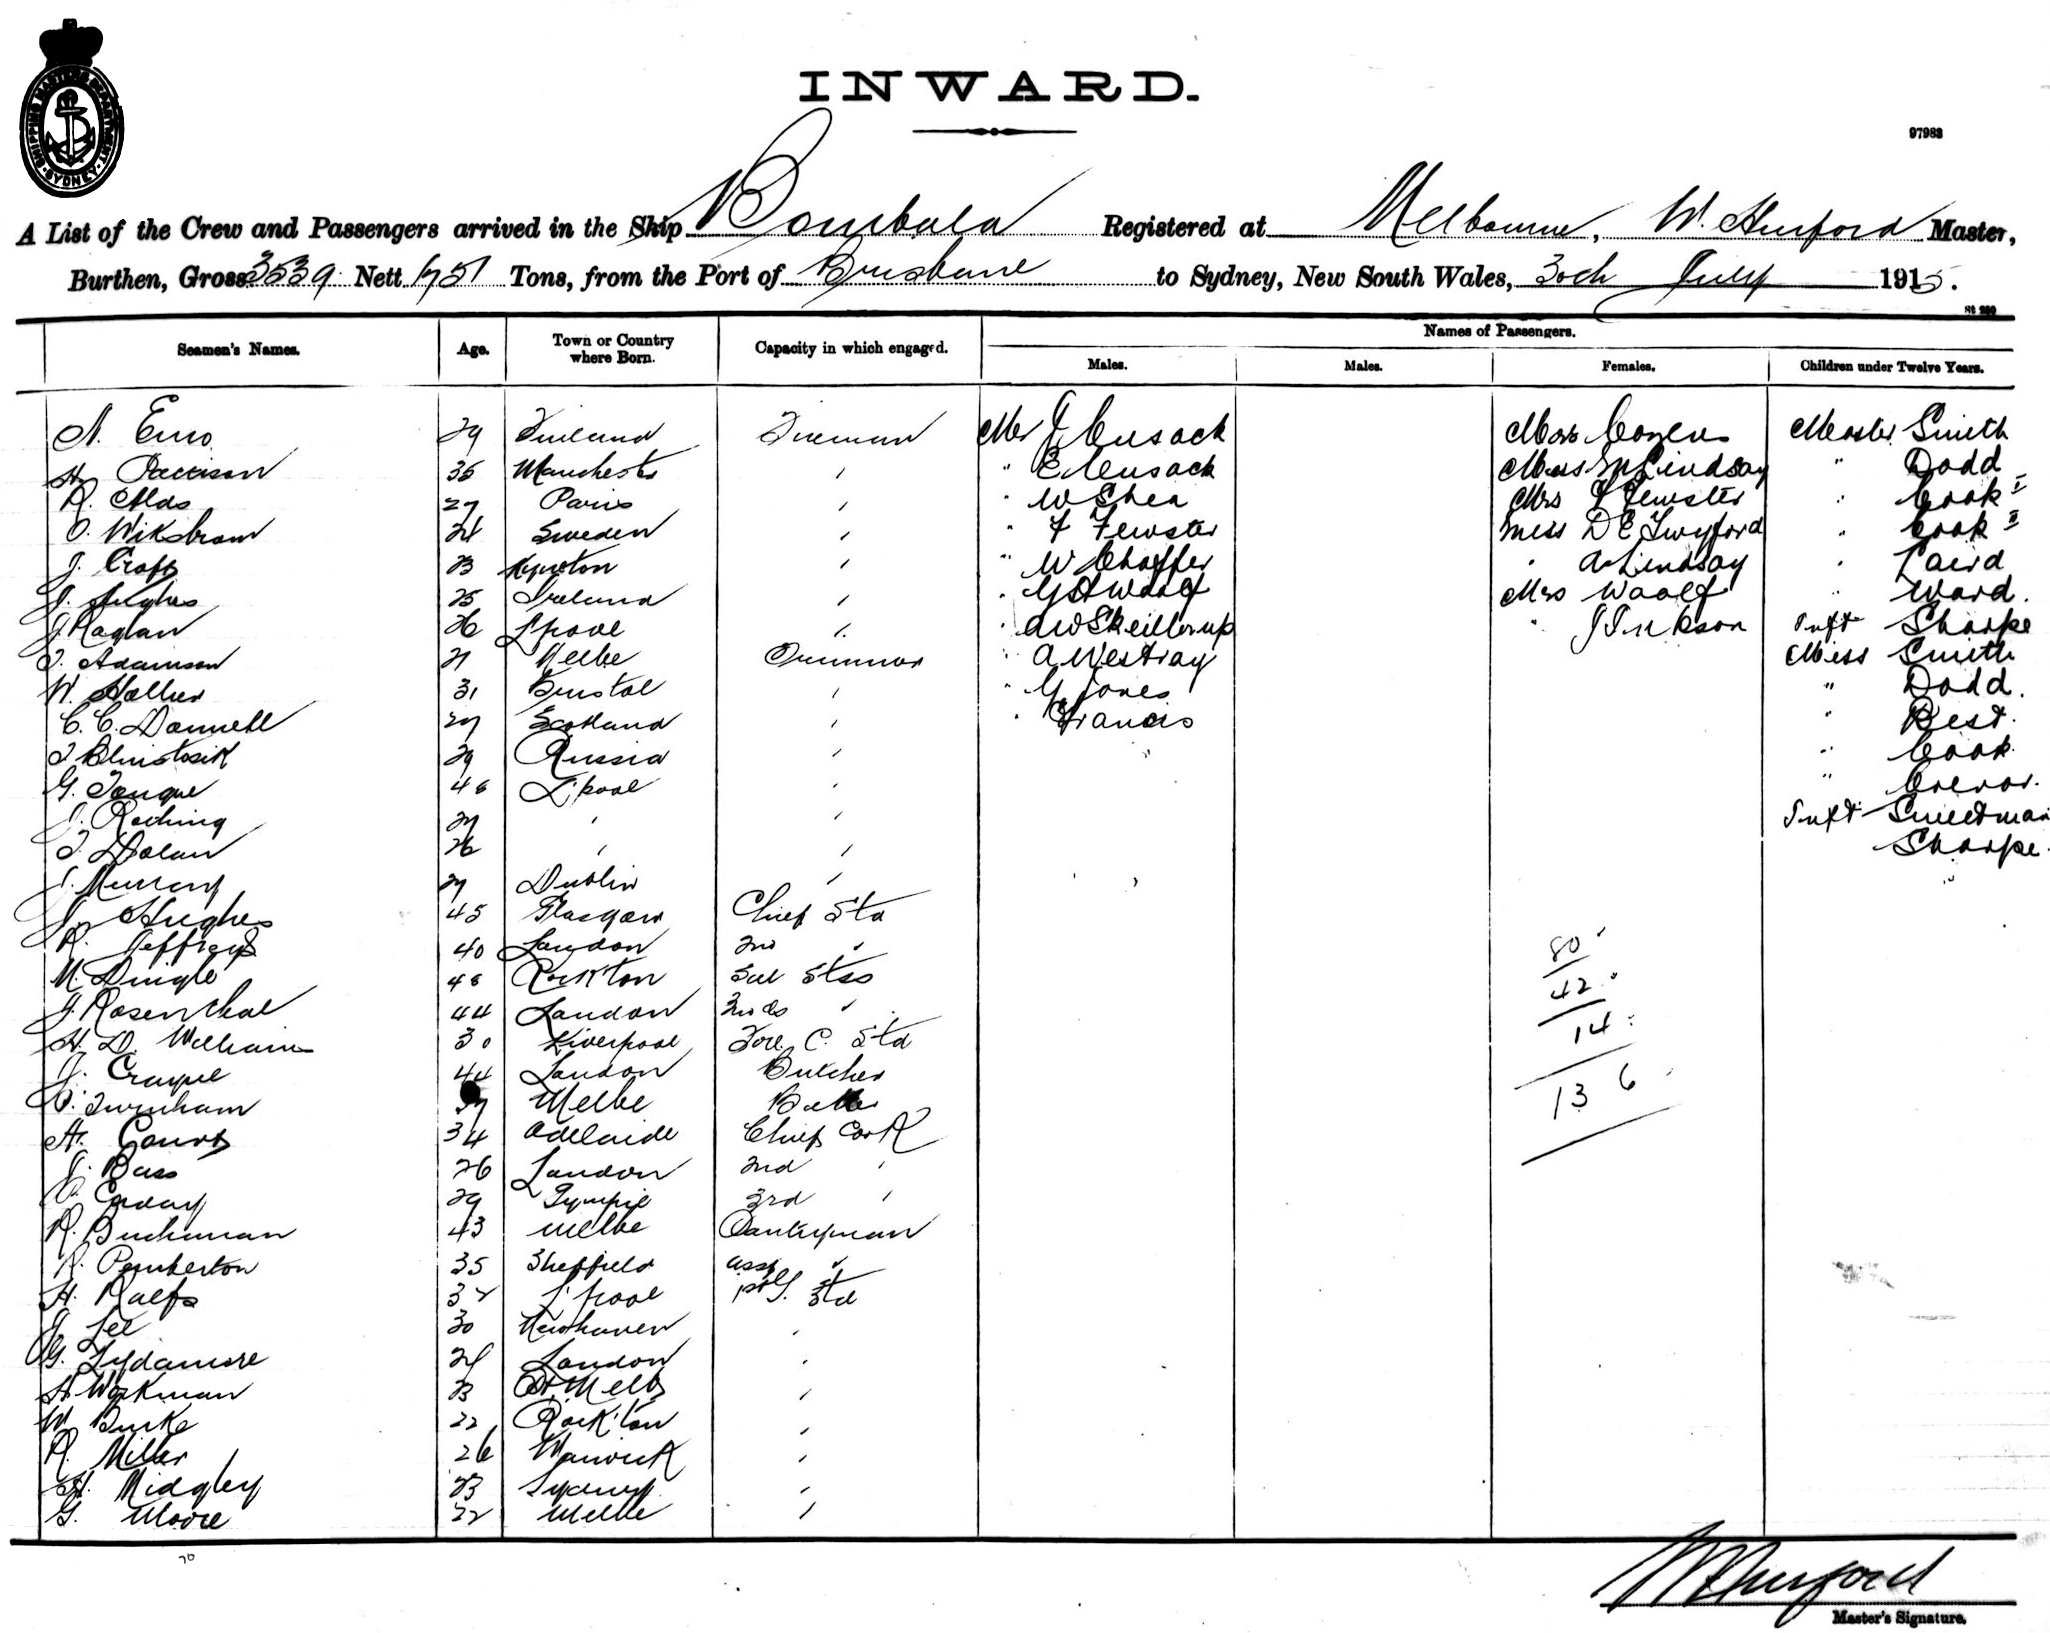 SHIPPING MASTER'S DEPARTMENT
SYDNEY
INWARD.
97983
A List of the Crew and Passengers arrived in the Ship Bombala Registered at Melbourne, W. Hurford Master,
Burthen, Gross 3539 Nett Tons, from the Port of Brisbane to Sydney, New South Wales, 30th July 1915.
St 290
Names of Passengers.
Seamen's Names. Age. Town or Country where Born. Capacity in which engaged. Males. Males. Females. Children under Twelve Years.
29 Finland Fireman Mr J Cusack Master Smith
H. Pattison 35 Manchester " E Cusack " Dodd
R. 27 Paris " W Shea Mrs F Fewster " Cook I
O. Wikstrom 24 Sweden " F Fewster Miss D E Twyford " Cook II
J. Croft 23 " W Chaffer " A Lindsay " Laird
J. Hughes 25 Ireland Mrs Woolf " Ward.
J Raglan 26 L'pool " A W Skellerup " J Inkson Inft Sharpe
T. Adamson 21 Melbe " A Westray Miss Smith
W. 31 Bristol " G Jones " Dodd.
C. C. Donnell 27 Scotland " Francis " Best.
29 Russia " Cook
G. Tongue 46 L'pool "
J. 27 " Inft Sweetman
T. Dolan 26 " Sharpe.
J. Murray 27 Dublin
J. Hughes 45 Glasgow Chief Std
R. Jeffreys 40 London 2nd "
M. Dingle 48 Rock'ton Sal Stss
J Rosenthal 44 London 2nd do "
H. D. Williams 30 Liverpool Fore C. Std
J. 44 London Butcher
Twinham 37 Melbe
A. Court 34 Adelaide Chief Cook
J. Bass 26 London 2nd "
29 Gympie 3rd "
R. Buchanan 43 Melbe Pantryman
R. Pemberton 35 Sheffield asst "
H. Ralfs 32 L'pool 1st S. Std
J. Lee 30 Newhaven
G. Lydamore 24 London
H. Workman 23 Melb
W. Burke 22 Rock'ton
R. Miller 26 Warwick
H. Midgley 23 Sydney
G. Moore 22 Melbe
80
42
14
136
70
W Hurford
Master's Signature.